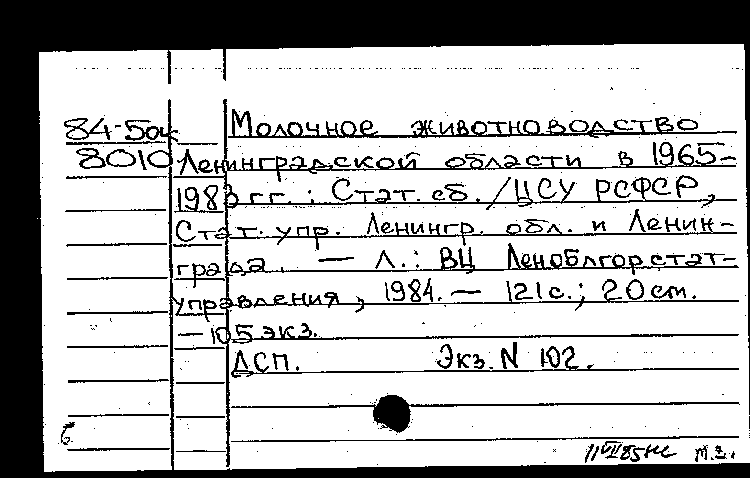 84-5ок Молочное животноводство
8010 Ленинградской области в 1965-
1983 гг. : Стат. сб. / ЦСУ РСФСР,
Стат. упр. Ленингр. обл. и Ленин-
града. — Л.: ВЦ Леноблгорстат-
управления, 1984. — 121 с.; 20 см.
— 105 экз.
ДСП. Экз. N 102.